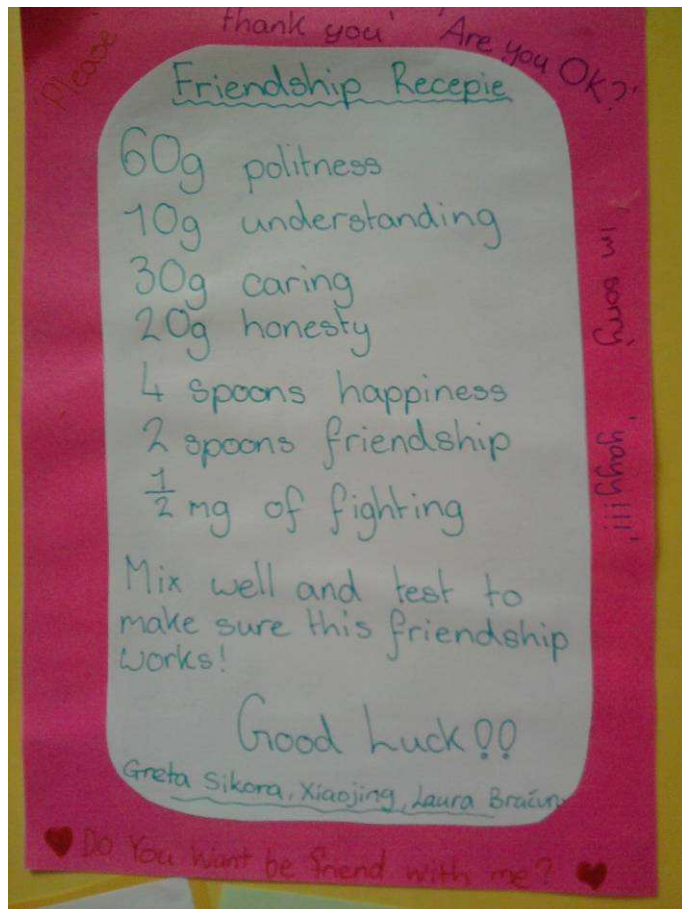 'Please
thank you'
'Are you OK?'
Friendship Recepie
60g politness
10g understanding
30g caring
20g honesty
4 spoons happiness
2 spoons friendship
1/2 mg of fighting
Mix well and test to
make sure this friendship
works!
Good Luck!!
Greta Sikora, Xiaojing, Laura
'im sorry'
'yayy!!!!'
♥ Do You want be friend with me? ♥